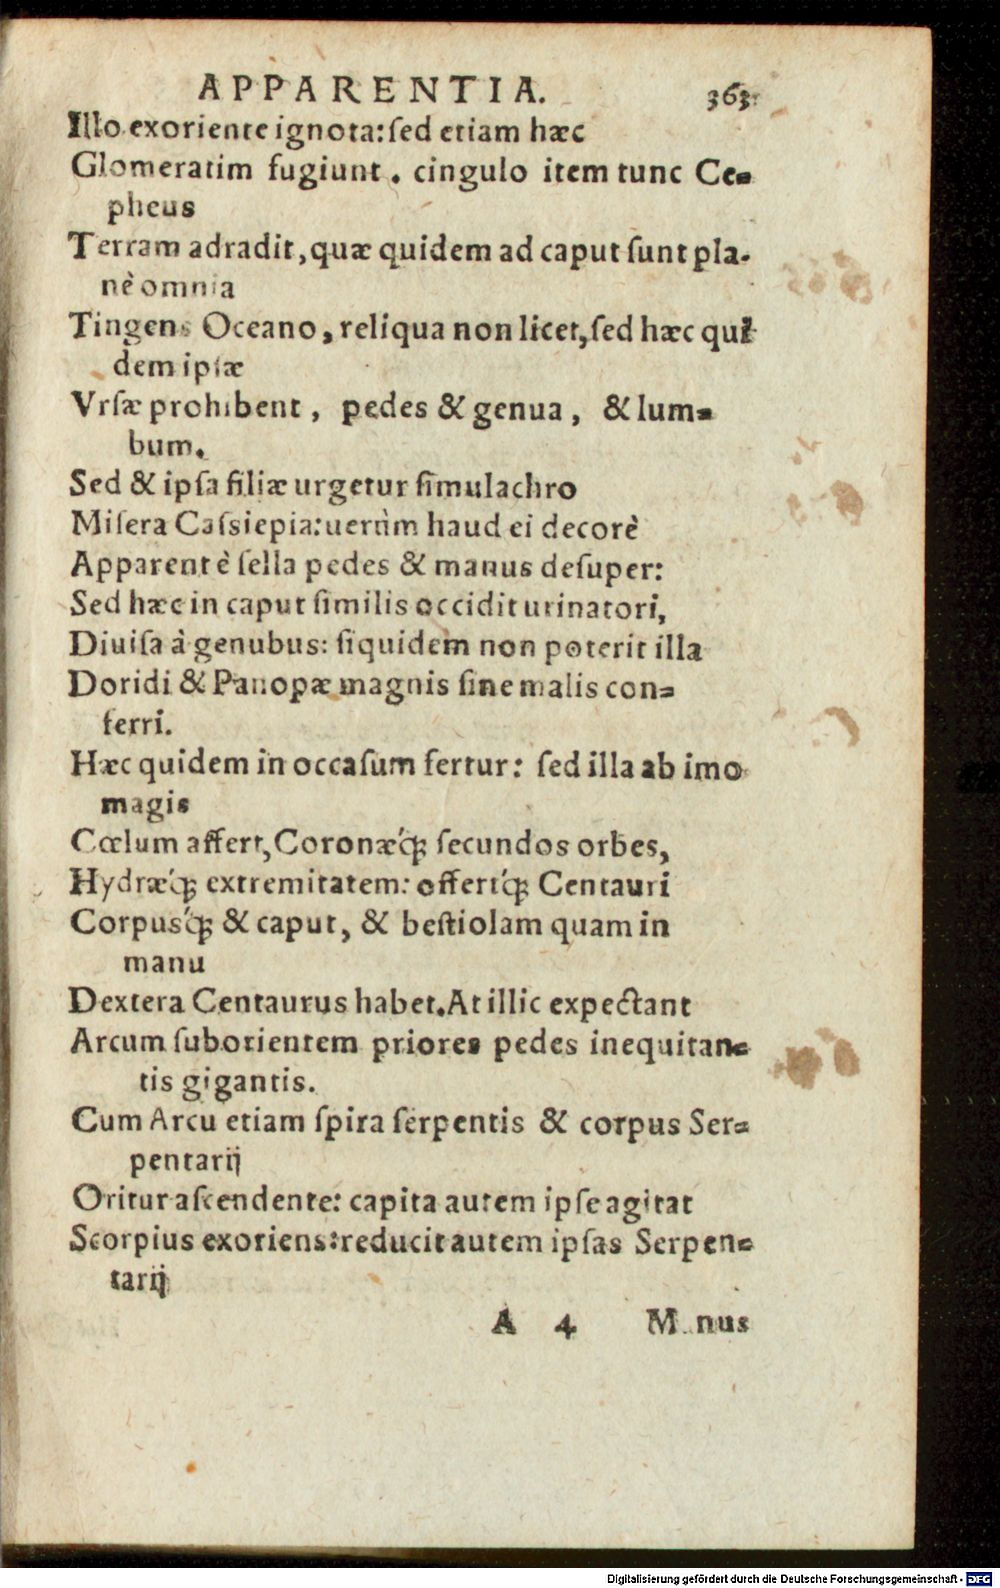 APPARENTIA. 363
Illo exoriente ignota: sed etiam hæc
Glomeratim fugiunt. cingulo item tunc Ce-
pheus
Terram adradit, quæ quidem ad caput sunt pla-
nè omnia
Tingens Oceano, reliqua non licet, sed hæc qui
dem ipsæ
Vrsæ prohibent, pedes & genua, & lum-
bum.
Sed & ipsa filiæ urgetur simulachro
Misera Cassiepia: uerùm haud ei decorè
Apparent è sella pedes & manus desuper:
Sed hæc in caput similis occidit urinatori,
Diuisa à genubus: siquidem non poterit illa
Doridi & Panopæ magnis sine malis con-
ferri.
Hæc quidem in occasum fertur: sed illa ab imo
magis
Cœlum affert, Coronæq́; secundos orbes,
Hydræq́; extremitatem: offertq́; Centauri
Corpusq́; & caput, & bestiolam quam in
manu
Dextera Centaurus habet. At illic expectant
Arcum suborientem priores pedes inequitan-
tis gigantis.
Cum Arcu etiam spira serpentis & corpus Ser-
pentarij
Oritur ascendente: capita autem ipse agitat
Scorpius exoriens: reducit autem ipsas Serpen-
tarij
A 4 Manus
Digitalisierung gefördert durch die Deutsche Forschungsgemeinschaft - DFG